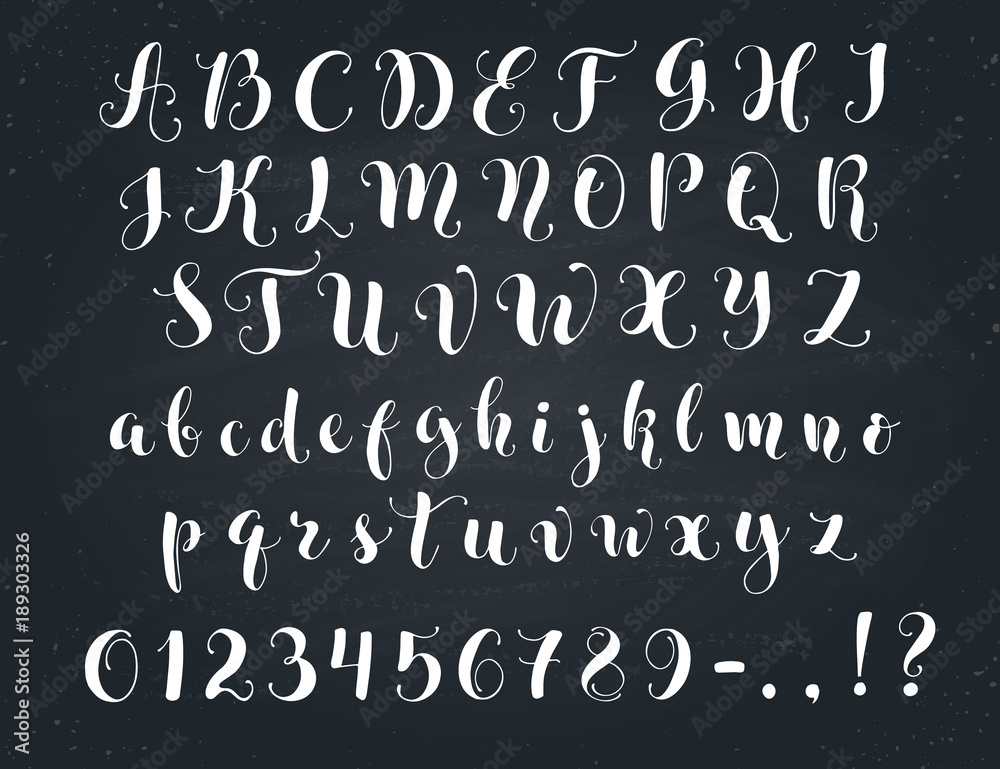 A B C D E F G H I
J K L M N O P Q R
S T U V W X Y Z
a b c d e f g h i j k l m n o
p q r s t u v w x y z
0 1 2 3 4 5 6 7 8 9 - . , ! ?
Adobe Stock | #189303326